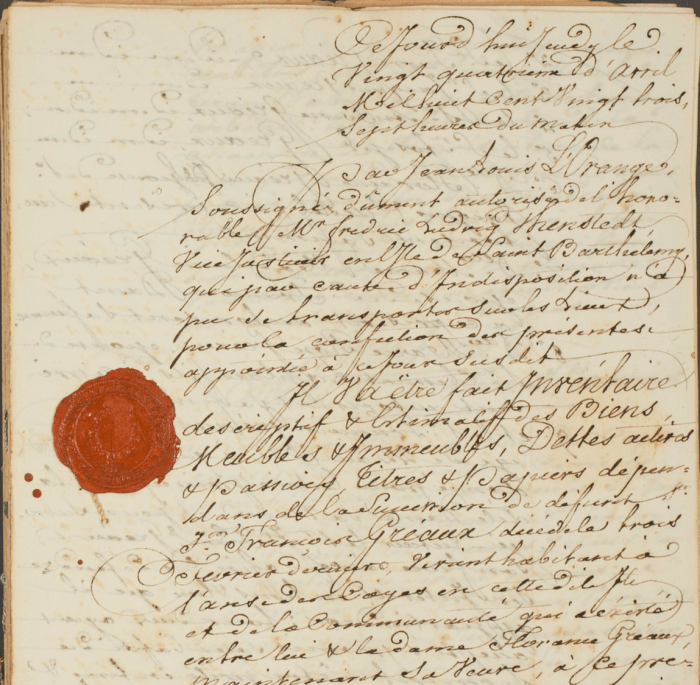 Ce Jourd'hui Jeudy le
Vingt quatrieme d'Avril
Mil huit Cent Vingt trois,
Sept heures du matin
Par Jean Louis L'Orange,
Soussigné dûment autorisé de l'hono-
rable Mr. fredric Ludvig Thenstedt,
Vice Justicier en l'Ile de Saint Barthelemy,
que par cause d'Indisposition n'a
pu se transporter sur les Lieux,
pour la confection des presentes
appointée à ce Jour susdit
Il Va être fait Inventaire
descriptif & Estimatif des Biens,
Meubles & Immeubles, Dettes actives
& passives Titres & Papiers dépen-
dans de la Succession de défunt Sr.
Jn. Francois Gréaux décédé le trois
Fevrier dernier, Vivant habitant à
l'anse des Cayes en cette dite Ile
et de la Communauté qui a existé
entre lui & la dame Floranne Gréaux,
maintenant sa Veuve, à ce pre-